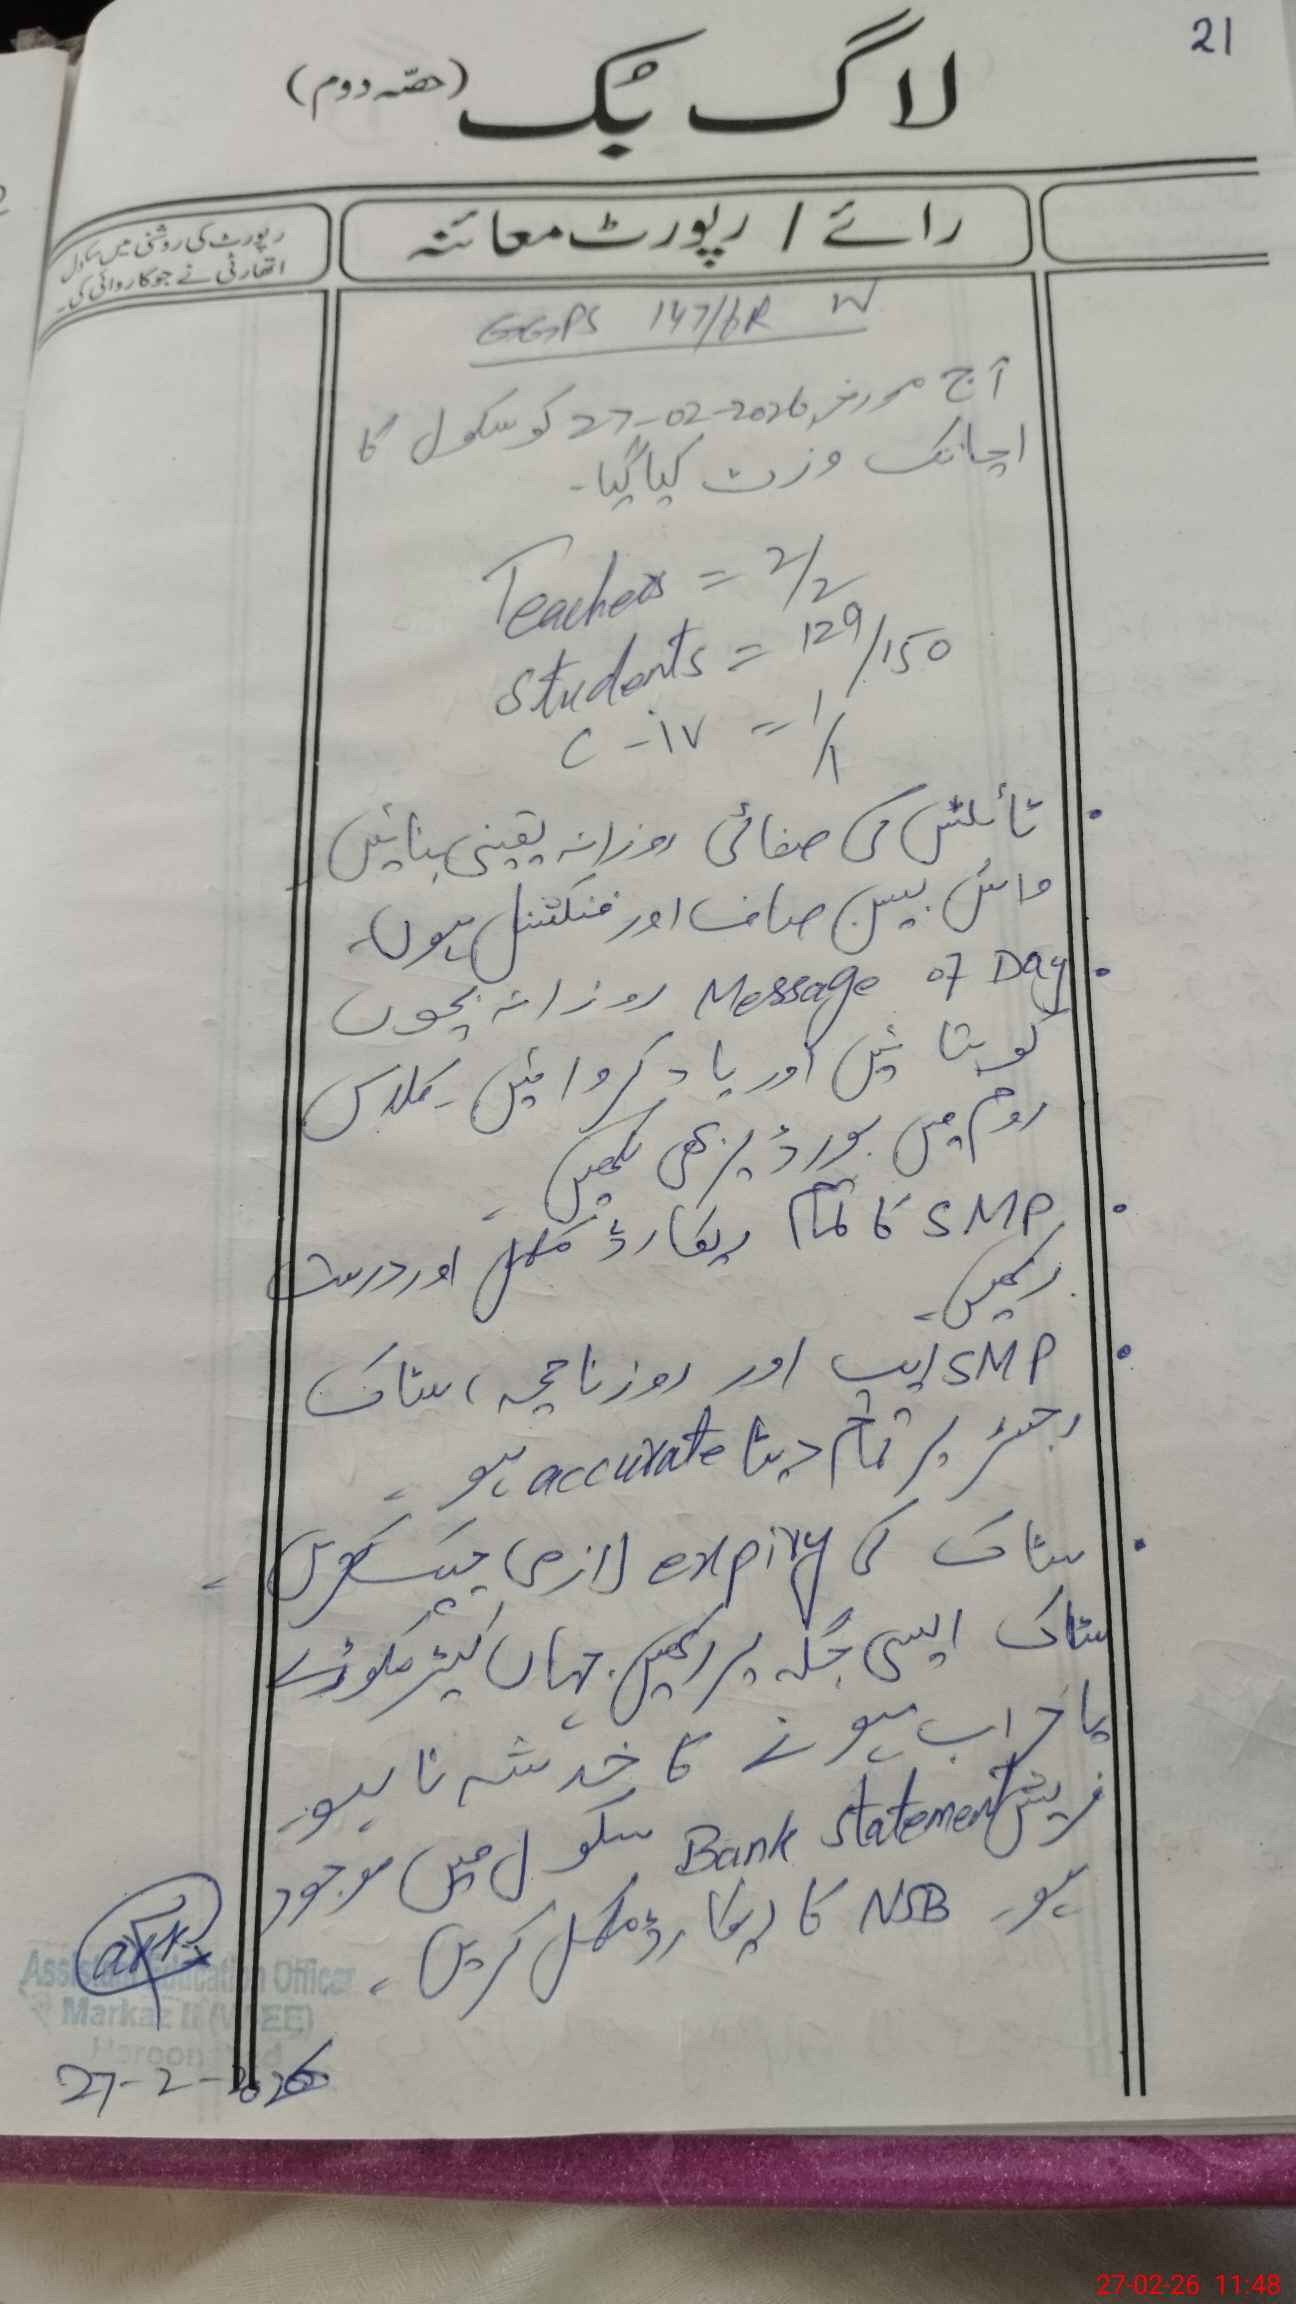 21
لاگ بُک (حصّہ دوم)
رائے / رپورٹ معائنہ
رپورٹ کی روشنی میں سکول
اتھارٹی نے جو کاروائی کی۔
GGPS 147/6R W
آج مورخہ 27-02-2026 کو سکول کا
اچانک وزٹ کیا گیا۔
Teachers = 2/2
Students = 129/150
C-iv = 1/1
• ٹائلٹس کی صفائی روزانہ یقینی بنائیں۔
واش بیسن صاف اور فنکشنل ہوں۔
• Message of Day روزانہ بچوں
کو بتائیں اور یاد کروائیں۔ کلاس
روم میں بورڈ پر بھی لکھیں۔
• SMP کا تمام ریکارڈ مکمل اور درست
رکھیں۔
• SMP ایپ اور روزنامچہ، سٹاک
رجسٹر پر تمام ڈیٹا accurate ہو۔
• سٹاک کی expiry لازمی چیک کریں۔
سٹاک ایسی جگہ پر رکھیں جہاں کیڑے مکوڑے
یا خراب ہونے کا خدشہ نا ہو۔
فریش Bank statement سکول میں موجود
ہو۔ NSB کا ریکارڈ مکمل کریں۔
Assistant Education Officer
Markaz II (W-EE)
27-2-2026
27-02-26 11:48